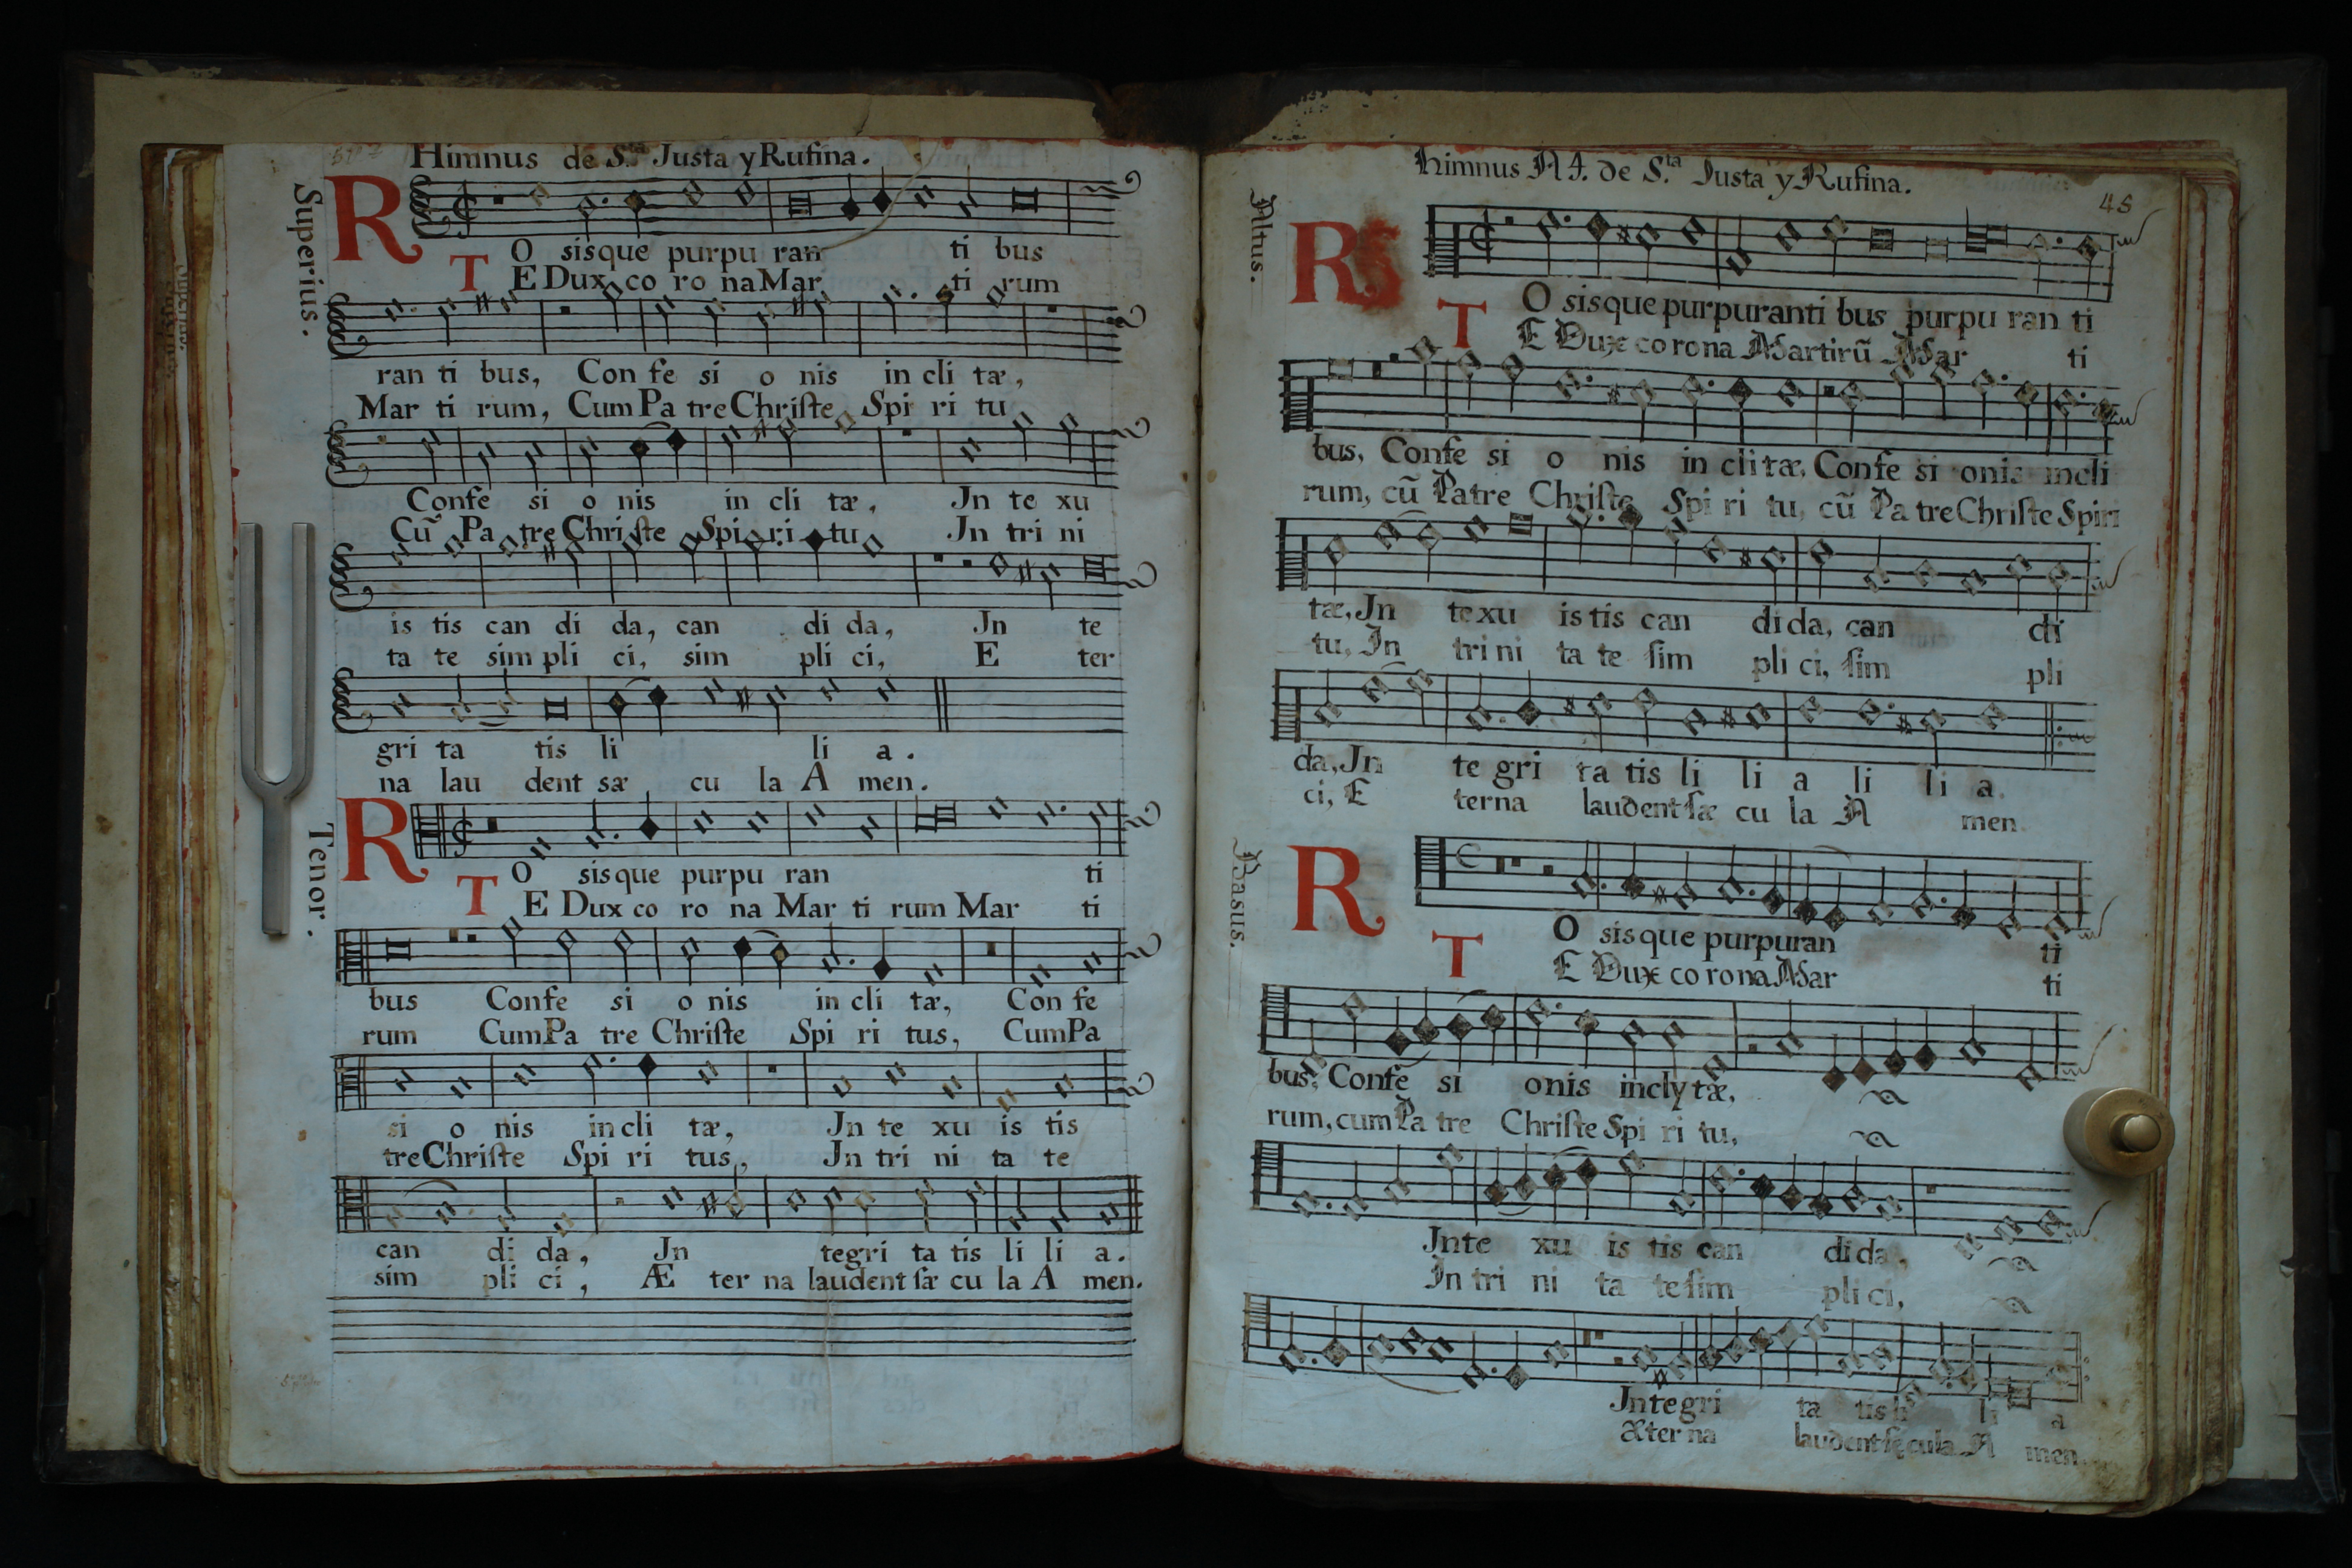 Himnus de S.ta Justa y Rufina.
Superius.
RO sisque purpu ran ti bus
TE Dux co ro na Mar ti rum
ran ti bus, Con fe si o nis in cli tæ,
Mar ti rum, Cum Pa tre Christe Spi ri tu
Confe si o nis in cli tæ, Jn te xu
Cũ Pa tre Christe Spi ri tu Jn tri ni
is tis can di da, can di da, Jn te
ta te sim pli ci, sim pli ci, E ter
gri ta tis li li a.
na lau dent sæ cu la A men.
Tenor.
RO sisque purpu ran ti
TE Dux co ro na Mar ti rum Mar ti
bus Confe si o nis in cli tæ, Con fe
rum CumPa tre Christe Spi ri tus, CumPa
si o nis in cli tæ, Jn te xu is tis
tre Christe Spi ri tus, Jn tri ni ta te
can di da, Jn tegri ta tis li li a.
sim pli ci, Æ ter na laudent sæ cu la A men.
Himnus A 4. de S.ta Justa y Rufina.
48
Altus.
RO sisque purpuranti bus purpu ran ti
TE Dux co rona Martirũ Mar ti
bus, Confe si o nis in cli tæ, Confe si onis incli
rum, cũ Patre Christe Spi ri tu, cũ Pa tre Christe Spiri
tæ, Jn texu istis can dida, can di
tu, In trini ta te sim pli ci, sim pli
da, Jn te gri ta tis li li a li li a.
ci, E terna laudent sæ cu la A men
Basus.
RO sisque purpuran ti
TE Dux co rona Mar ti
bus, Confe si onis inclytæ,
rum, cum Pa tre Christe Spi ri tu,
Jnte xu is tis can dida,
In tri ni ta te sim pli ci,
Jntegri ta tis li li a
æter na laudent sęcula A men